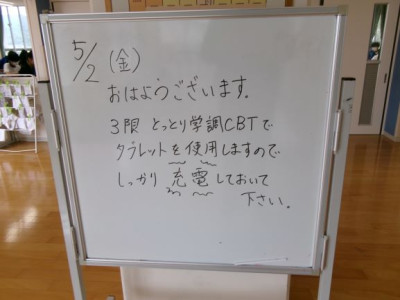 5/2(金)
おはようございます。
3限 とっとり学調CBTで
タブレットを使用しますので
しっかり 充電しておいて
下さい。